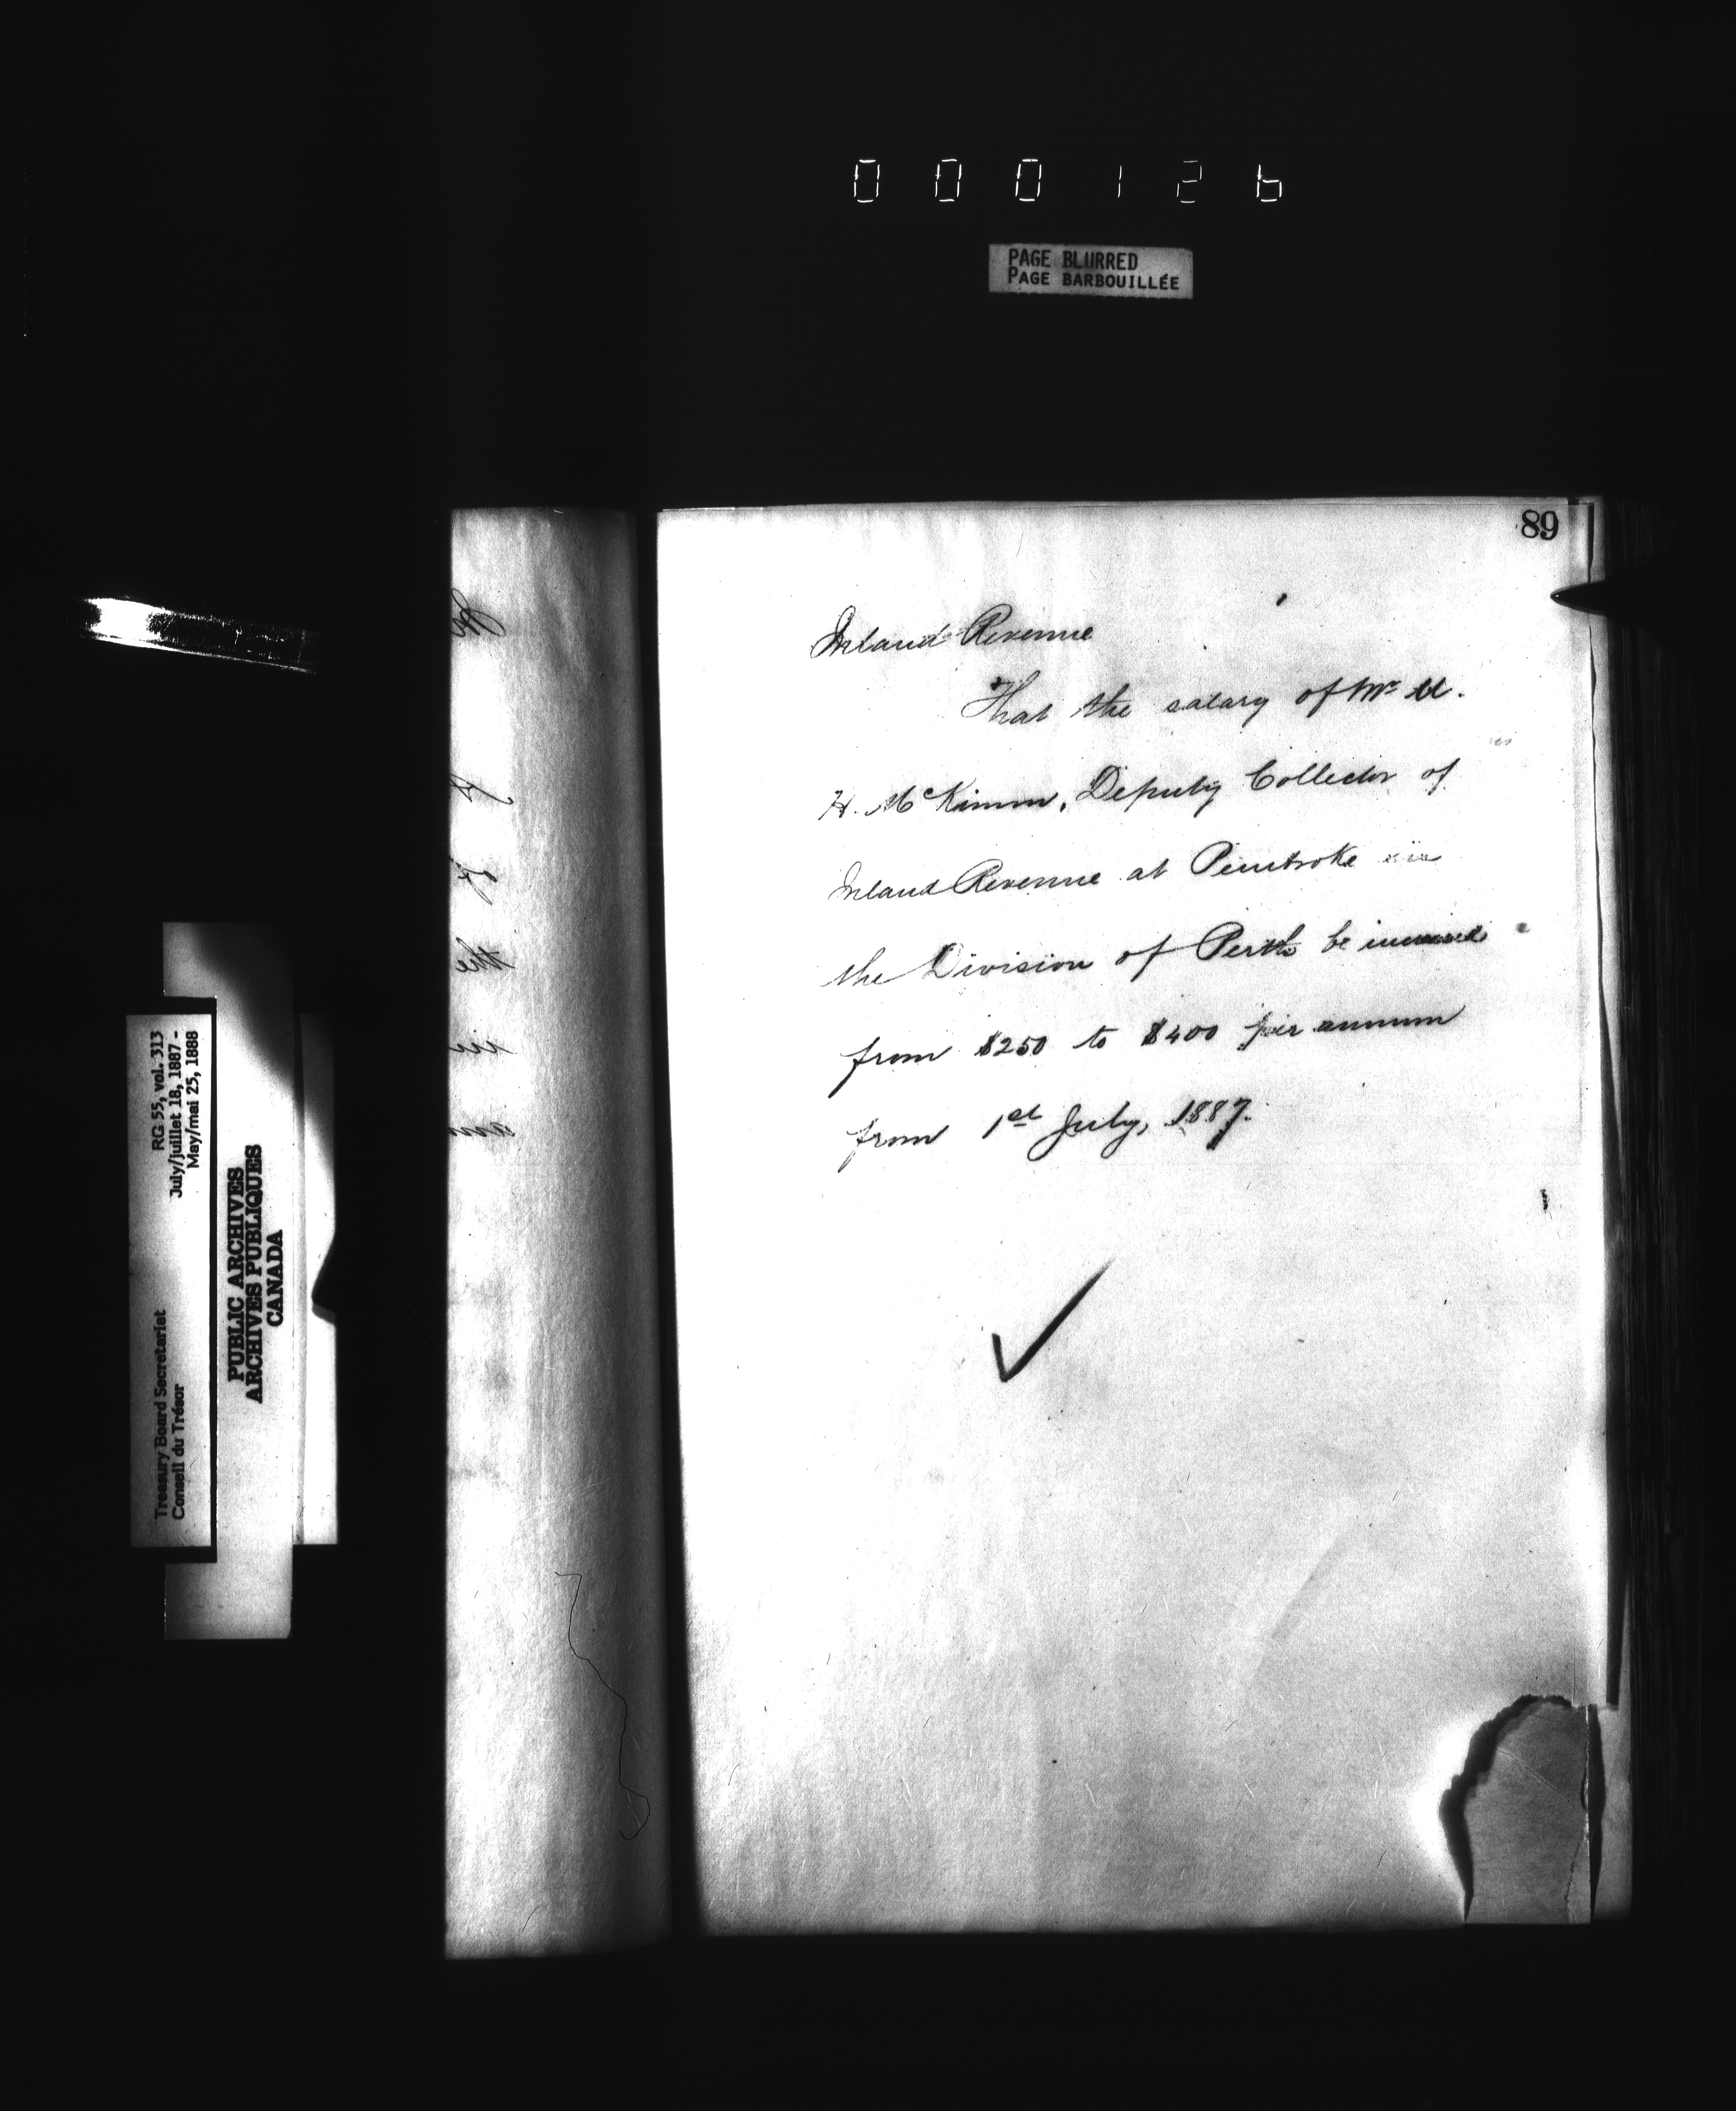 000126
PAGE BLURRED
PAGE BARBOUILLÉE
89
Inland Revenue
That the salary of Mr M.
H. McKimm, Deputy Collector of
Inland Revenue at Pembroke in
the Division of Perth be increased
from $250 to $400 per annum
from 1st July, 1887.
RG 55, vol. 313
July/juillet 18, 1887 -
May/mai 25, 1888
Treasury Board Secretariat
Conseil du Trésor
PUBLIC ARCHIVES
ARCHIVES PUBLIQUES
CANADA
of
the
in